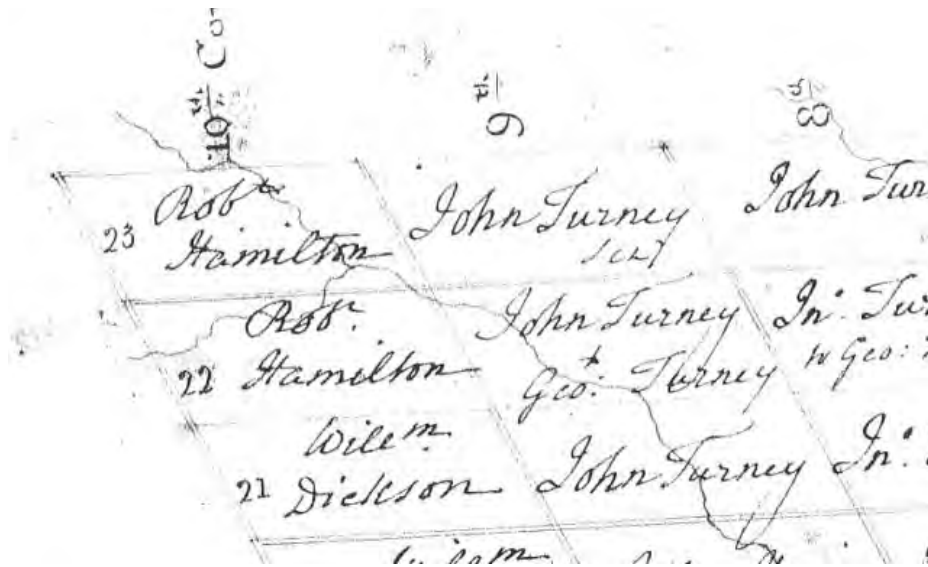 10th Co
9th
8th
23 Robt Hamilton
John Turney
John Tur
22 Robt. Hamilton
John Turney
& Geo: Turney
Jno. Tur
& Geo:
21 Willm. Dickson
John Turney
Jno.
Willm